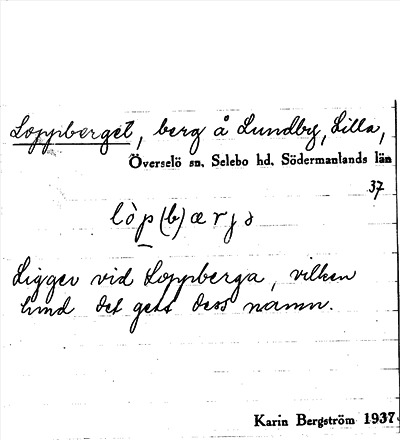 Loppberget, berg å Lundby, Lilla,
Överselö sn, Selebo hd, Södermanlands län
37
lòp(b)ærjə
Ligger vid Loppberga, vilken
hund det gett dess namn.
Karin Bergström 1937.